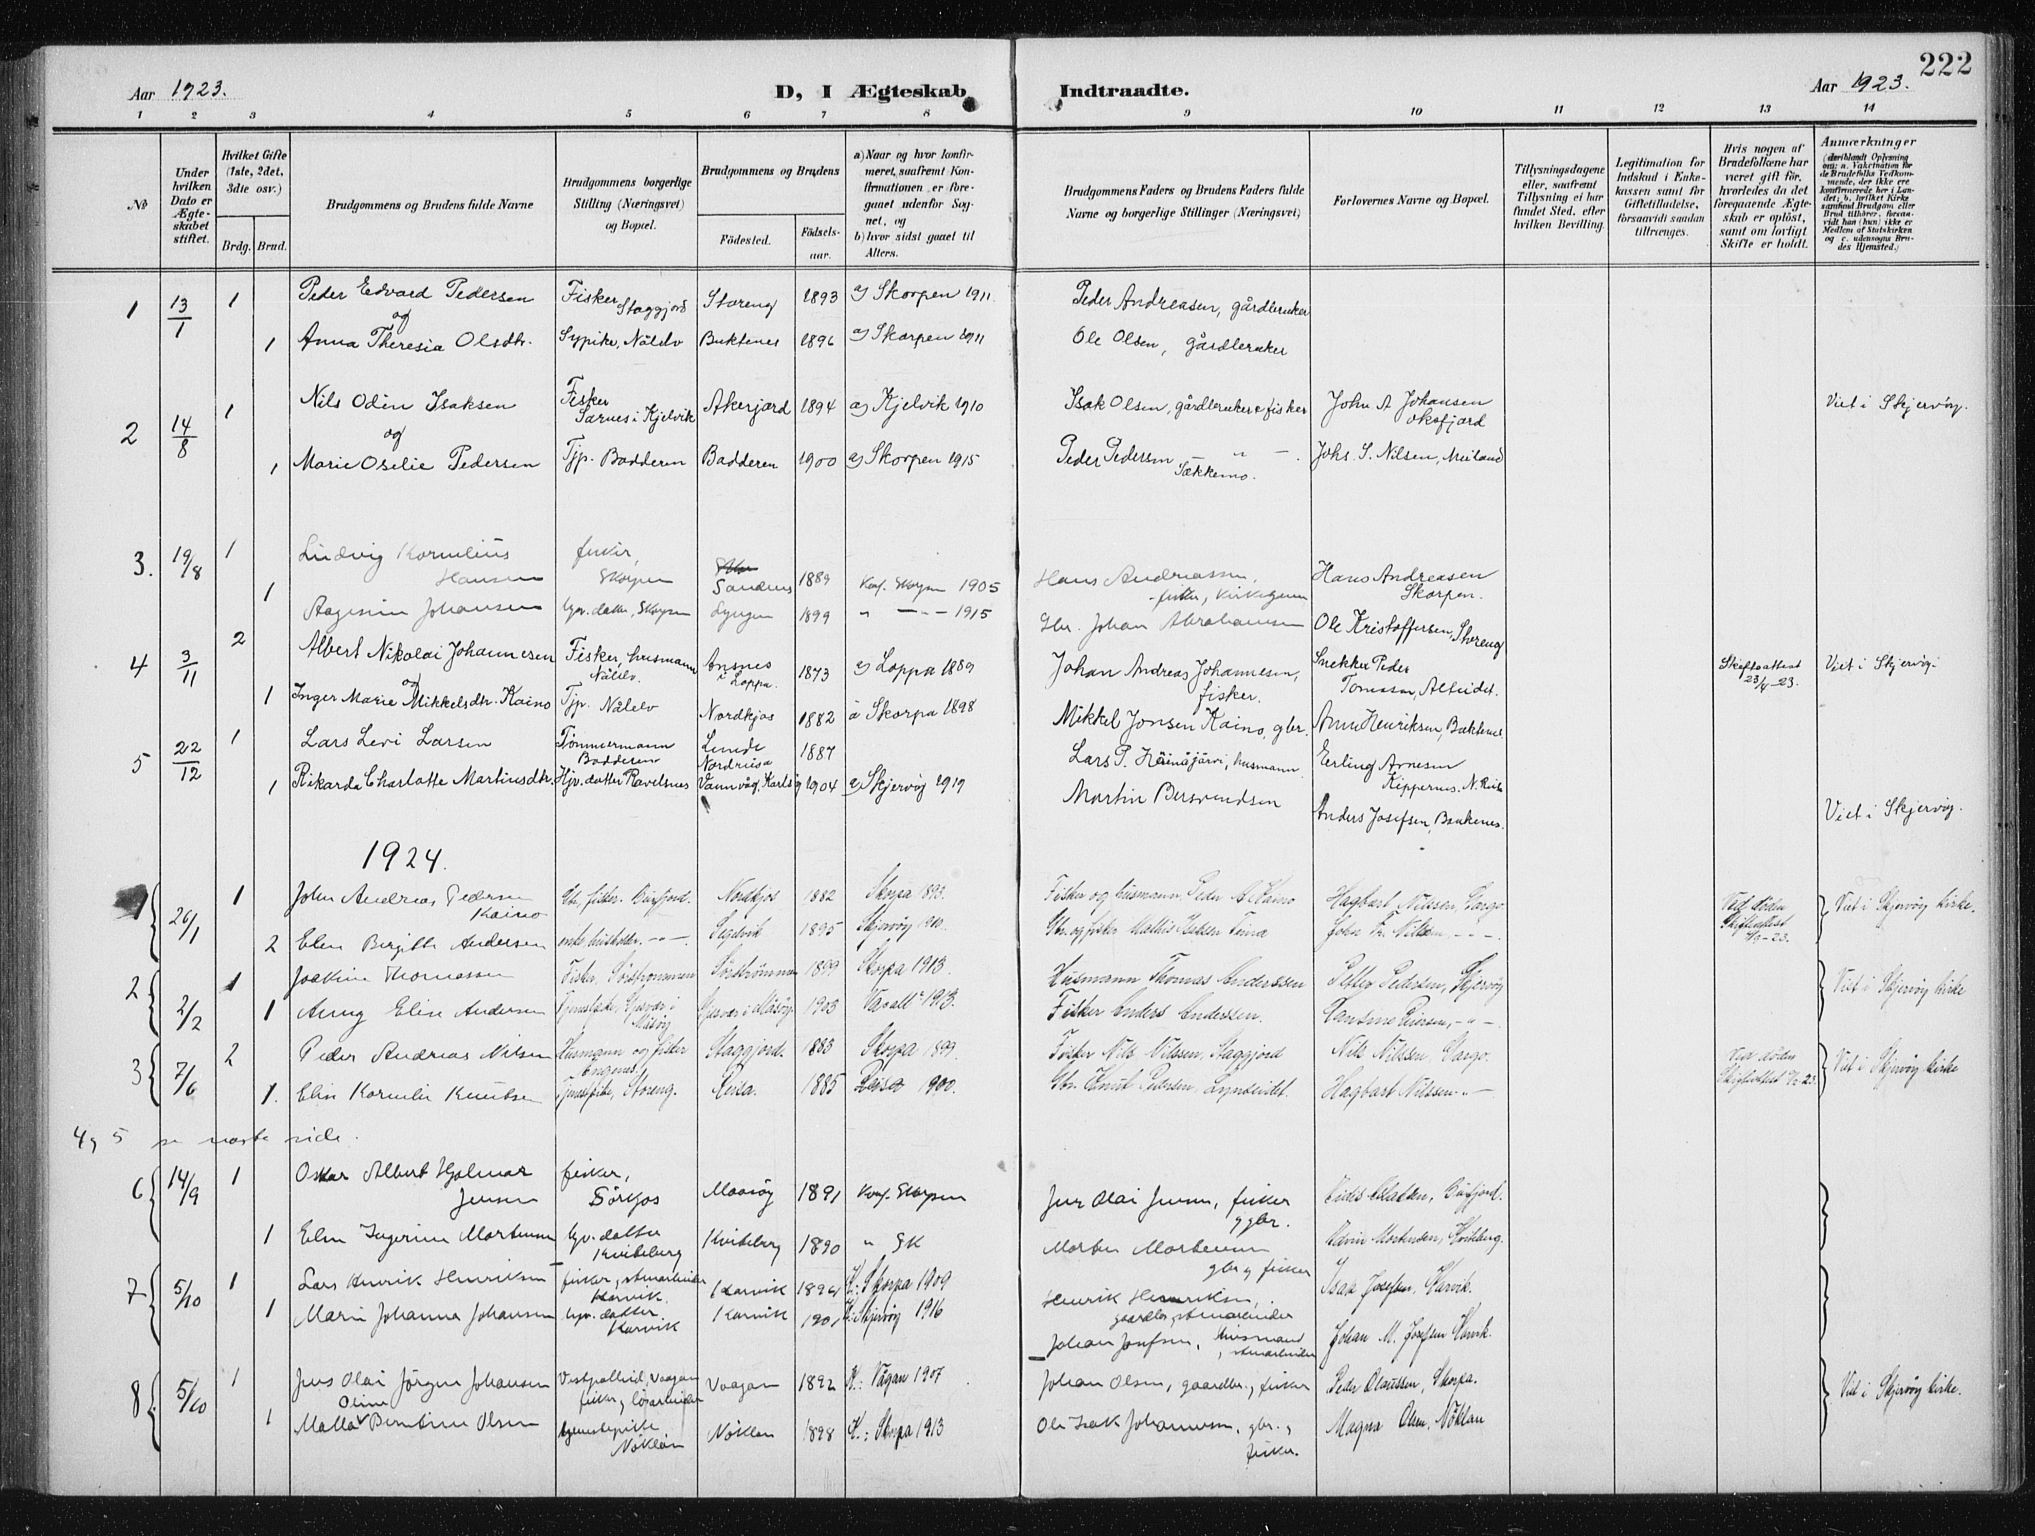 222
Aar 1923. D, I Ægteskab Indtraadte. Aar 1923.
1 2 3 4 5 6 7 8 9 10 11 12 13 14
№
Under hvilken Dato er Ægteskabet stiftet.
Hvilket Gifte (1ste, 2det, 3die osv.)
Brdg. Brud.
Brudgommens og Brudens fulde Navne
Brudgommens borgerlige Stilling (Næringsvei) og Bopæl.
Brudgommens og Brudens
Födested. Födsels-aar.
a) Naar og hvor konfirmeret, saafremt Konfirmationen er foregaaet udenför Sognet, og
b) hvor sidst gaaet til Alters.
Brudgommens Faders og Brudens Faders fulde Navne og borgerlige Stillinger (Næringsvei)
Forlovernes Navne og Bopæl.
Tillysningsdagene eller, saafremt Tillysning ei har fundet Sted, efter hvilken Bevilling.
Legitimation for Indskud i Enkekassen samt for Giftetilladelse, forsaavidt saadan tiltrænges.
Hvis nogen af Brudefolkene har været gift för, hvorledes da det foregaaende Ægteskab er oplöst, samt om lovligt Skifte er holdt.
Anmærkninger (deriblandt Oplysning om: a. Vakcination for de Brudefolks Vedkommende, der ikke ere konfirmerede her i Landet; b. hvilket Kirkesamfund Brudgom eller Brud tilhörer, forsaavidt han (hun) ikke er Medlem af Statskirken og c. udensogns Brudes Hjemsted.)
1 13/1 1 Peder Edvard Pedersen Fisker Staggjord Storeng 1893 a) Skorpen 1911. Peder Andreasen, gårdbruker
og
1 Anna Theresia Olsdtr. Sypike, Nålelv Buktenes 1896 a) Skorpen 1911 Ole Olsen, gårdbruker
2 14/8 1 Nils Odin Isaksen Fisker Sarnes i Kjelvik Akerjord 1894 a) Kjelvik 1910 Isak Olsen, gårdbruker & fisker John A Johansen oksfjord Viet i Skjervöy.
og
1 Marie Oselie Pedersen Tjp. Badderen Badderen 1900 a) Skorpen 1915 Peder Pedersen Sækkemo. Johs. S. Nilsen, Meiland
3. 19/8 1 Ludvig Kornelius Hansen fisker, Skorpen Sandnes 1889 Konf. Skorpen 1905 Hans Andreassen, fisker, kirketjener Hans Andreasen Skorpen.
1 Johansen tjv. datter, Skorpen Lyngen 1899 " — " — 1915 Gbr. Johan Abrahamsen Ole Kristoffersen, Storeng
4 3/11 2 Albert Nikolai Johannesen Fisker, husmann Nålelv. Ansnes i Loppa. 1873 a) Loppa 1889 Johan Andreas Johannesen, fisker. Snekker Peder Tomassen, Alteidet. Skifteattest 23/4-23. Viet i Skjervöy.
og
1 Inger Marie Mikkelsdtr. Kaino Tjp. Nålelv Nordkjos 1882 a Skorpa 1898 Mikkel Jonsen Kaino, gbr. Arne Henriksen, Buktenes
5 22/12 1 Lars Levi Larsen Tömmermann Badderen Lunde Nordreisa 1887 Lars P. Heinäjärvi, husmann. Erling Arnesen Kippernes. N. Reisa
1 Rikarda Charlotte Martinsdtr. Hjv. datter Ravelsnes Vannvåg, Karlsöy 1904 a) Skjervöy 1919 Martin Bersvendsen Anders Josefsen, Bankenes. Viet i Skjervöy.
1924.
1 26/1 1 John Andreas Pedersen Kaino Gbr, fisker. Burfjord. Nordkjos 1882 Skorpa 1893. Fisker og husmann Peder A. Kaino Hagbart Nilssen, Sargo Ved döden Skifteattest -23. Viet i Skjervöy kirke.
2 Elen Birgitte Andersen enke, husholder. -"-. Segelvik 1895 Skjervöy 1910. Gbr. og fisker Mathis John Nilsen, -"-
2 2/2 1 Joakim Thomassen Fisker, Sörstrommen Sörströmmen 1899 Skorpa 1913. Husmann Thomas Anderssen Petter Pedersen, Skjervöy Viet i Skjervöy kirke
1 Anny Elise Andersen Gjesvær i Måsöy Gjesvær i Måsöy. 1903 1913. Fisker Anders Anderssen.
3 7/6 2 Peder Andreas Nilsen Husmann og fisker Engenes, Staggjord. 1883 Skorpa 1899. Fisker Nils Nilssen, Staggjord Nils Nilssen, Sargo. Ved döden Viet i Skjervöy kirke
1. Elin Kornelie Knutsen Tjenestepike, Storeng. Reisa. 1885 Reisa 1900. Gbr. Knut Pedersen, Lyngseidet. Hagbart Nilssen. -"-
4 og 5 se næste side.
6 14/9 1 Oskar Albert Hjalmar Jensen fisker, Sörkjos Maasöy 1891 Konf. Skorpen Jens Olai Jensen, fisker og gbr. Burfjord.
1 Elen Ingerine Mortensen tjv. datter Kviteberg Kviteberg 1890 " SK Morten Mortensen gbr og fisker Edvin Mortensen, Kviteberg.
7 5/10 1 Lars Henrik Henriksen fisker, stenarbeider Karvik. Karvik 1896 K.: Skorpa 1909 Henrik Henriksen, gaardbr, stenarbeider Isak Josefsen, Karvik.
1 Marie Johanna Johansen tjv. datter Karvik Karvik 1901 K: Skjervöy 1916 Johan Josefsen, husmand, stenarbeider Johan M. Josefsen Karvik.
8 5/10 1 Jens Olai Jörgen Johansen Vestpollnid, Vaagan fisker, Vaagan 1892 K.: Vågan 1907 Johan Olsen, gaardbr., fisker Peder Olaussen, Skorpa. Viet i Skjervöy kirke.
Oline
1 Malla Berntine Olsen tjenestepike Nöklan Nöklan 1898 K.: Skorpa 1913 Ole Isak Johannesen, gbr., fisker. Magna Olsen, Nöklan